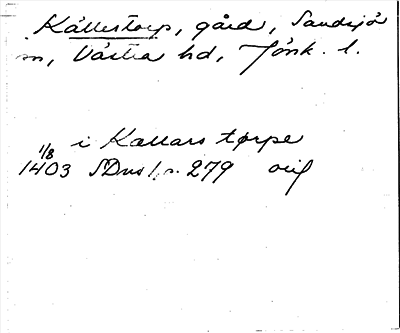 Källestorp, gård, Sandsjö
sn, Västra hd, Jönk. l.
i Kallars tørpe
1/8
1403 SDns 1, s. 279 orig